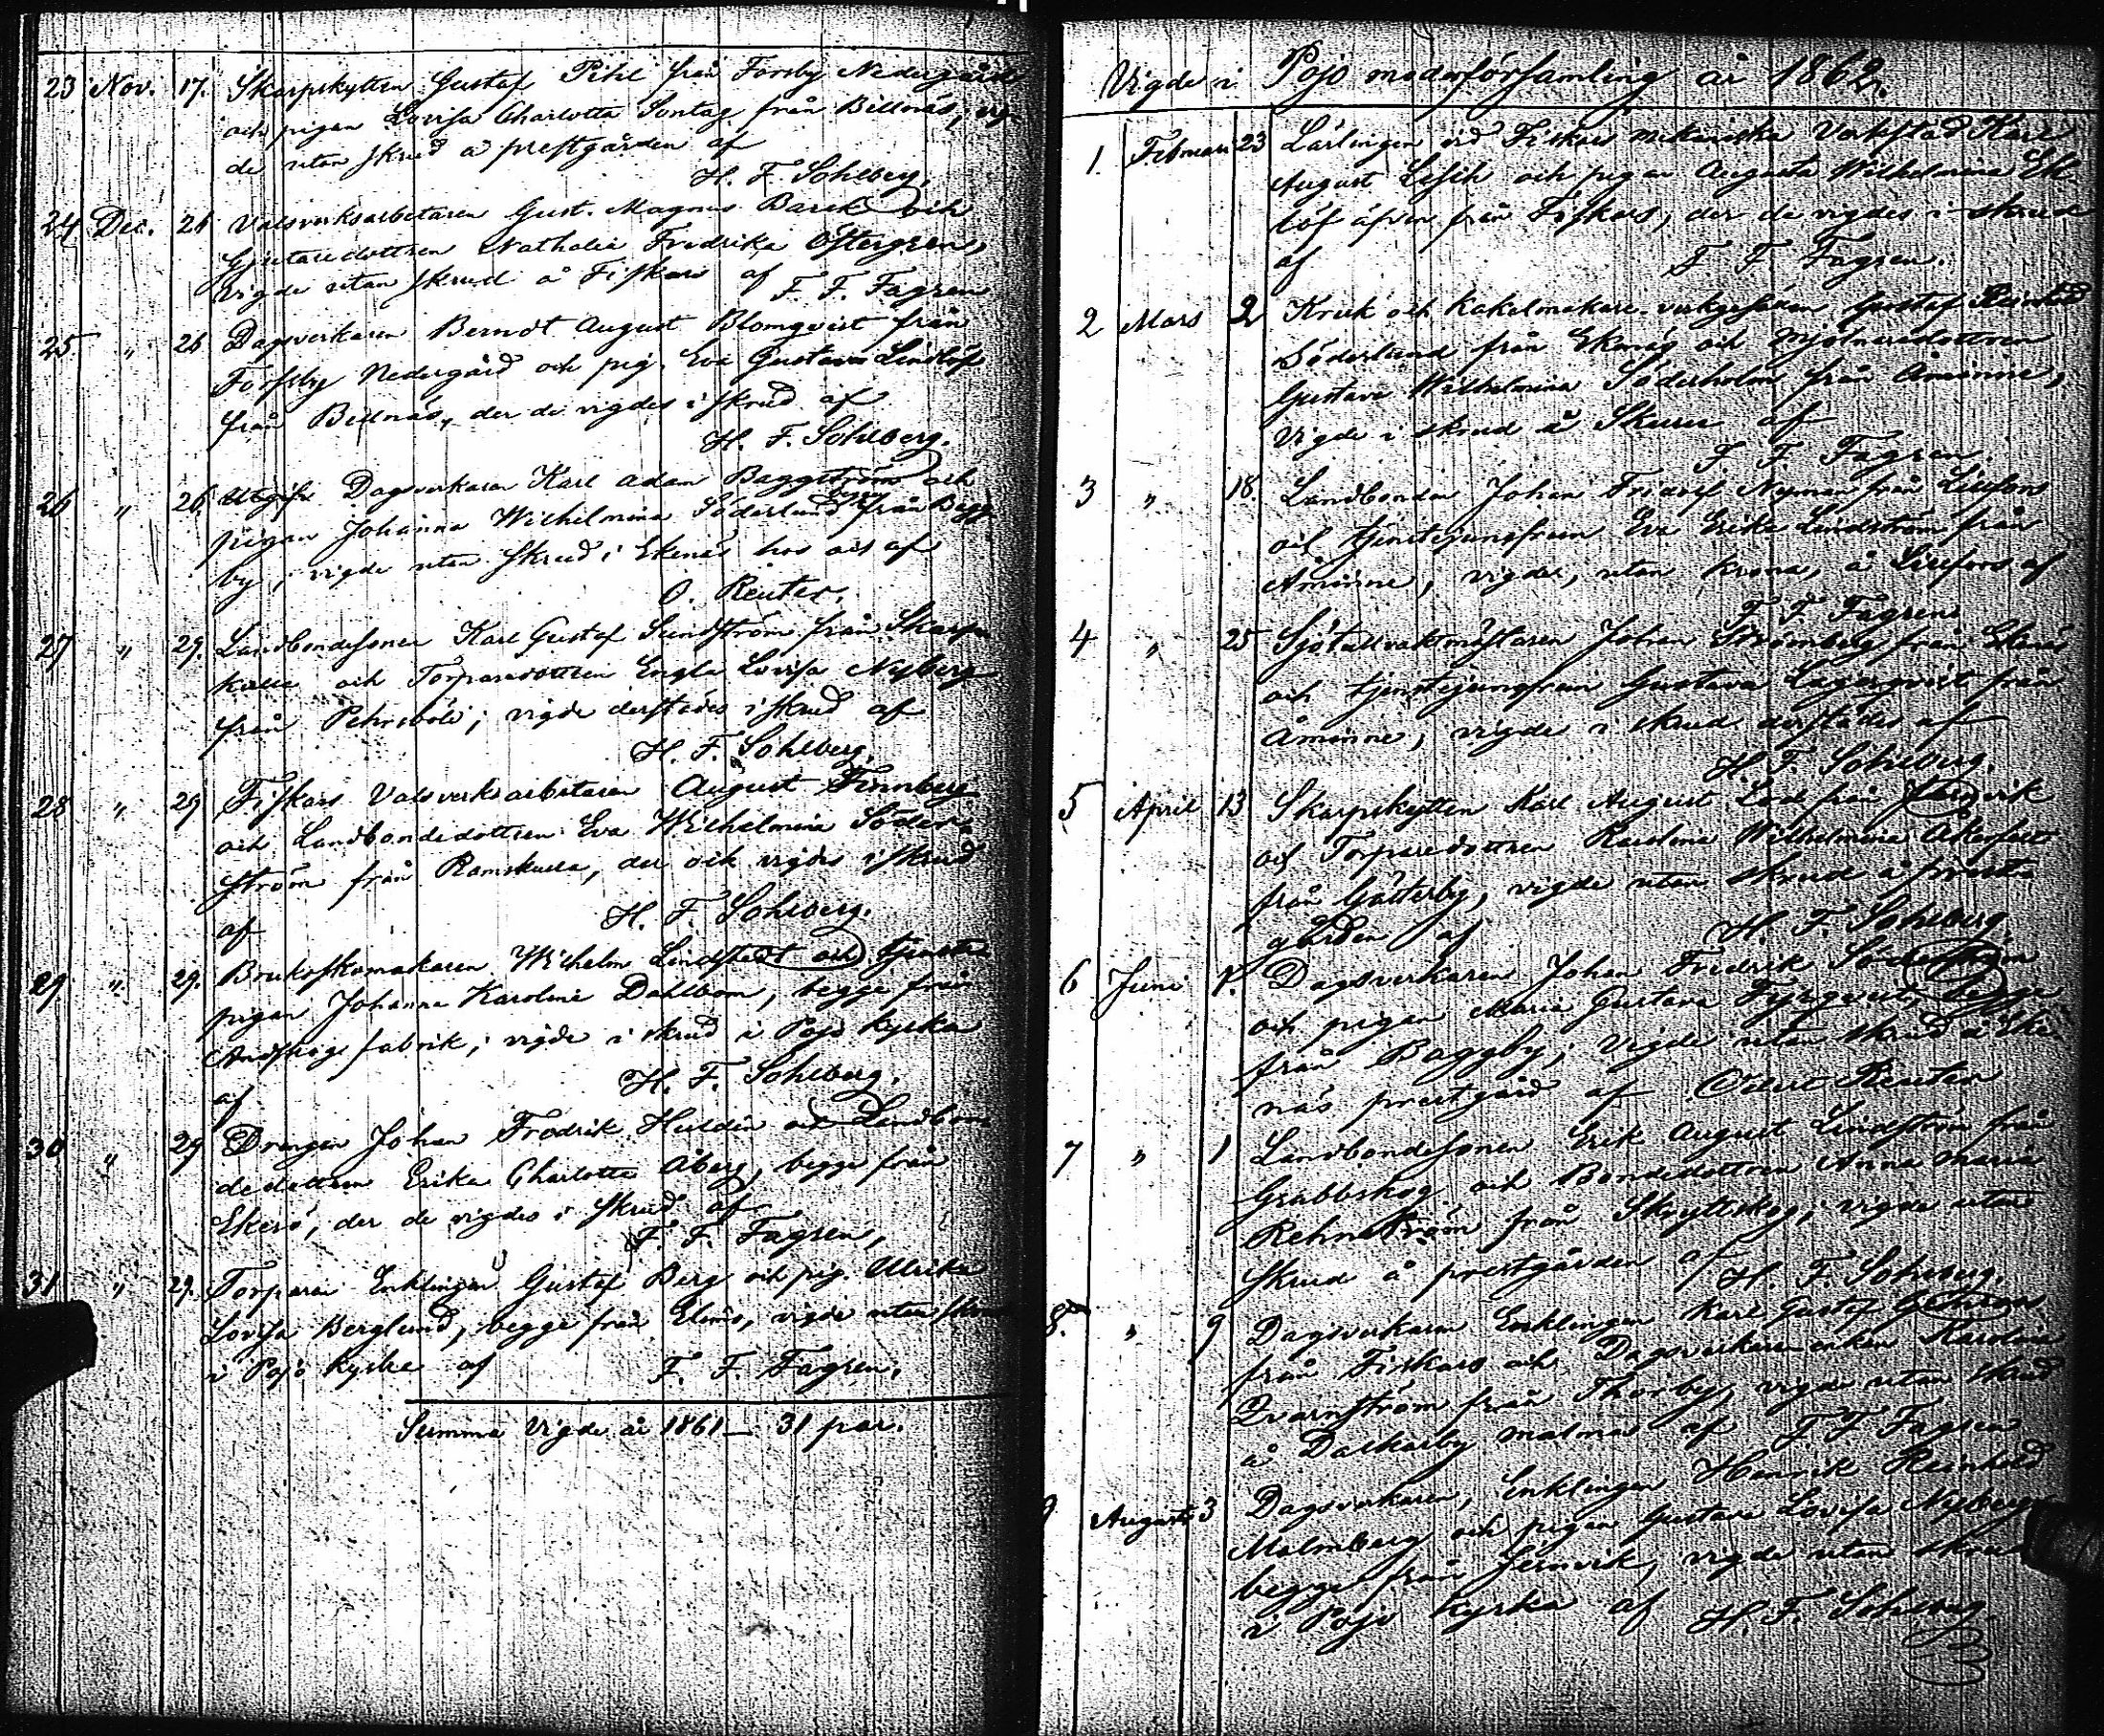 23 Nov. 17. Skarpskytten Gustaf Pihl från Forsby Nedergård
och pigan Lovisa Charlotta Sontag från Billnäs, vig-
de utan skrud å prestgården af
H. F. Sohlberg.
24 Dec. 26 Valsverksarbetaren Gust. Magnus Barck och
Gjutaredottren Nathalia Fredrika Östergren,
vigde utan skrud å Fiskars af F. F. Fagren
25 " 26 Dagsverkaren Berndt August Blomqvist från
Forsby Nedergård och pig. Eva Gustava Lindlöf
från Billnäs, der de vigdes i skrud af
H. F. Sohlberg.
26 " 26 Dagsverkaren Karl Adam Baggström och
pigan Johanna Wilhelmina Söderlund begge från Bagg-
by, vigde utan skrud i Ekenäs af
O. Reuter.
27 " 29. Landbondesonen Karl Gustaf Sundström från Skarp-
kulla och Torparedottren Engla Lovisa Nyberg
från Pehrsböle; vigde derstädes i skrud af
H. F. Sohlberg.
28 " 29 Fiskars Valsverksarbetaren August Finnberg
och Landbondedottren Eva Wilhelmina Söder-
ström från Ramskulla, der och vigdes i skrud
af H. F. Sohlberg.
29 " 29. Bruksskomakaren Wilhelm Lindstedt och tjenste-
pigan Johanna Karolina Dahlbom, begge från
Antskogs fabrik; vigde i skrud i Pojo kyrka
af H. F. Sohlberg.
30 " 29 Drengen Johan Fredrik Huldin och Landbon-
dedottren Erika Charlotta Åberg, begge från
Ekerö, der de vigdes i skrud af
F. F. Fagren,
31 " 29. Torparen Enklingen Gustaf Berg och pig. Ulrika
Lovisa Berglund, begge från Elimo, vigde utan skrud
i Pojo kyrka af F. F. Fagren,
Summa Vigde år 1861 — 31 par.
Vigde i Pojo moderförsamling år 1862.
1. Februari 23 Lärlingen vid Fiskars mekaniska Verkstad Karl
August och pigan Augusta Wilhelmina Ek-
löf äfven från Fiskars, der de vigdes i skrud
af F. F. Fagren.
2 Mars 2 Kruk och Kakelmakare- Gustaf Reinhold
Söderlund från Ekenäs och Mjölnaredottren
Gustava Wilhelmina Söderholm från Åminne,
Vigde i skrud å Skuru af
F. F. Fagren.
3 " 18. Landbonden Johan Fridolf Nyman från Lillfors
och tjenstejungfrun Eva Erika Lindström från
Åminne, vigde, utan krona, å Lillfors af
F. F. Fagren
4 " 25 Sjötullvaktmästaren Johan Strömberg från Ekenäs
och tjenstejungfrun Gustava Lagerqvist från
Åminne, vigde i skrud derstädes af
H. F. Sohlberg.
5 April 13 Skarpskytten Karl August Lod från
och Torparedottren Karolina Wilhelmina Åkerfelt
från Götterby, vigde utan skrud å prest-
gården af H. F. Sohlberg.
6 Juni 1. Dagsverkaren Johan Fredrik Söderholm
och pigan Maria Gustava Fyrqvist, begge
från Baggby; vigde utan skrud å Eke-
näs prestgård af Reuter
7 " 1 Landbondesonen Erik August Lindström från
Grabbskog och Bondedottren Anna Maria
Rehnström från Skryttskog; vigde utan
skrud å prestgården af H. F. Sohlberg.
8. " 9 Dagsverkaren Enklingen Karl Gustaf
från Fiskars och Dagsverkare enkan Karolina
Qvarnström från Thorby, vigde utan skrud
å Dalkarby malmar af F. F. Fagren
9 Augusti 3 Dagsverkaren, Enklingen Henrik Reinhold
Malmberg och pigan Gustava Lovisa Nyberg
begge från Jernvik, vigde utan skrud
i Pojo kyrka af H. F. Sohlberg.